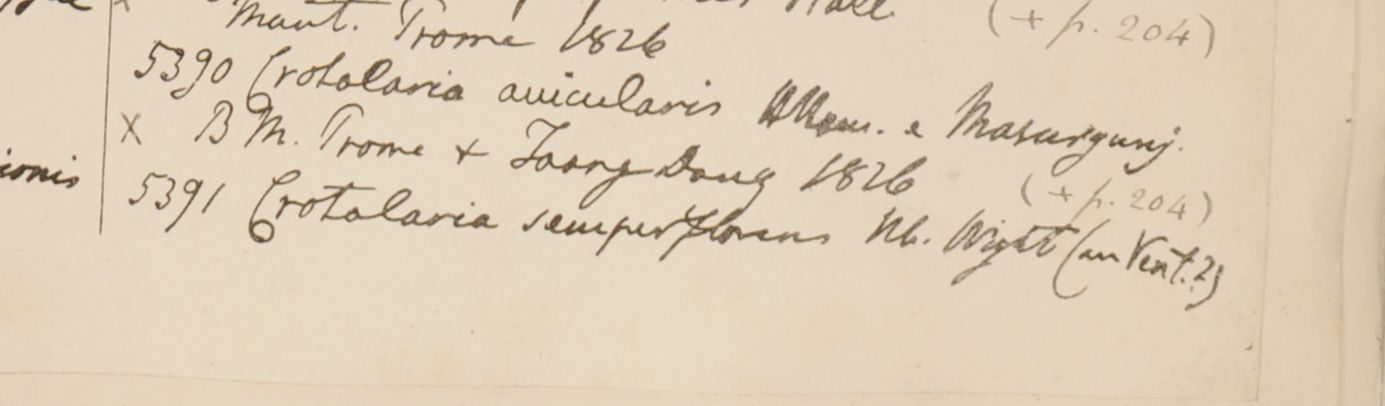 x
Maut. Prome 1826 (+ p. 204)
5390 Crotalaria avicularis e Masurgunj.
x B M. Prome + Taong Dong 1826 (+ p. 204)
ionis
5391 Crotalaria semperflorens Hb. Wight (an Vent.?)